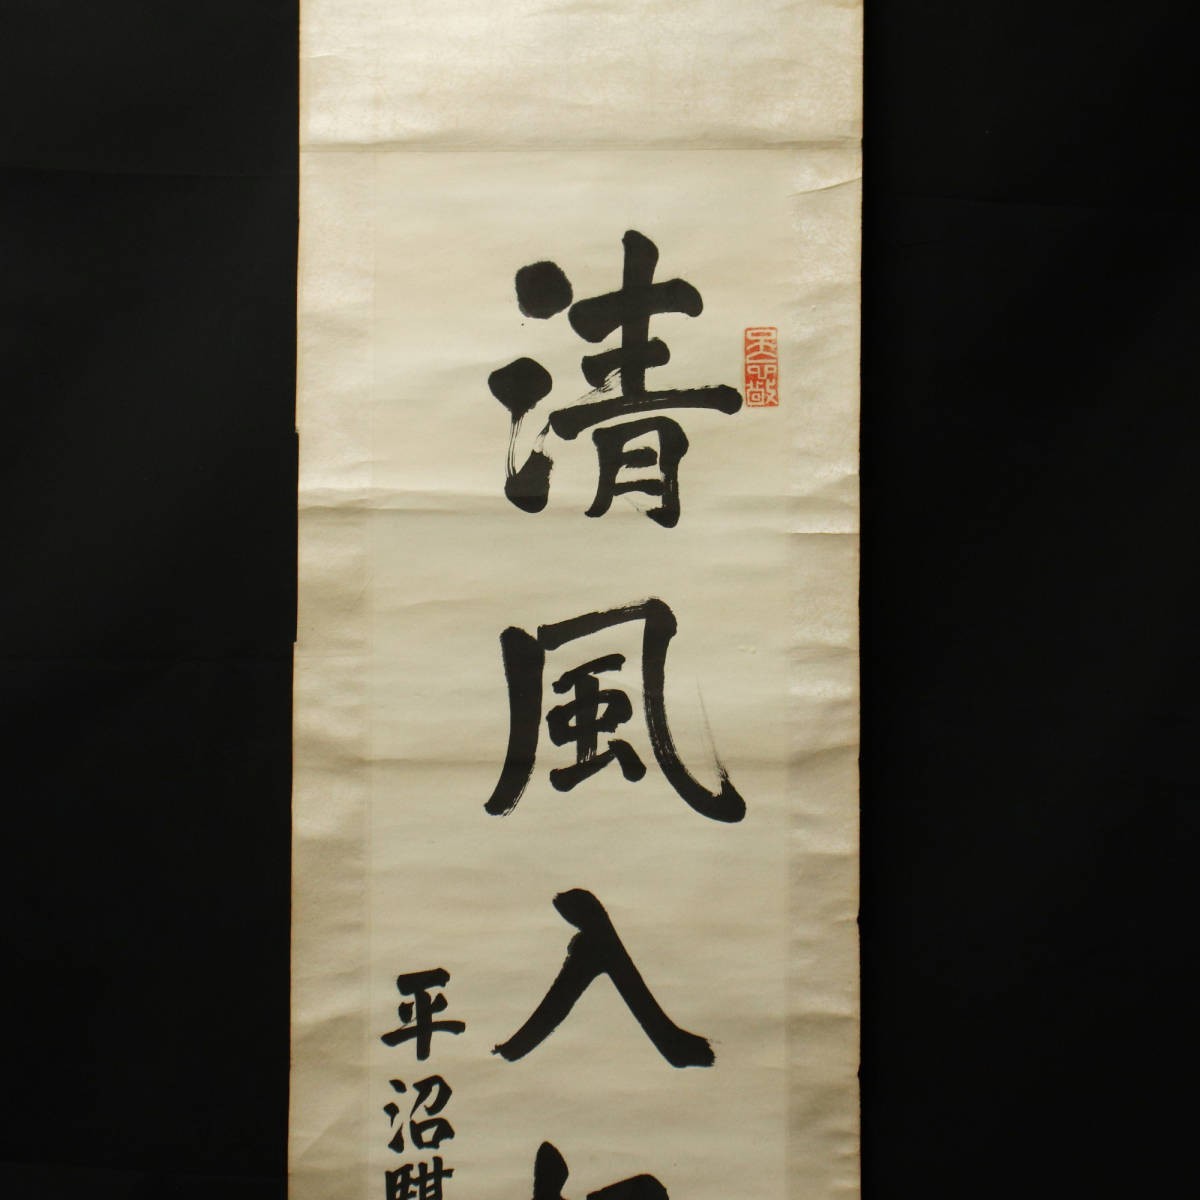 清風入
平沼騏